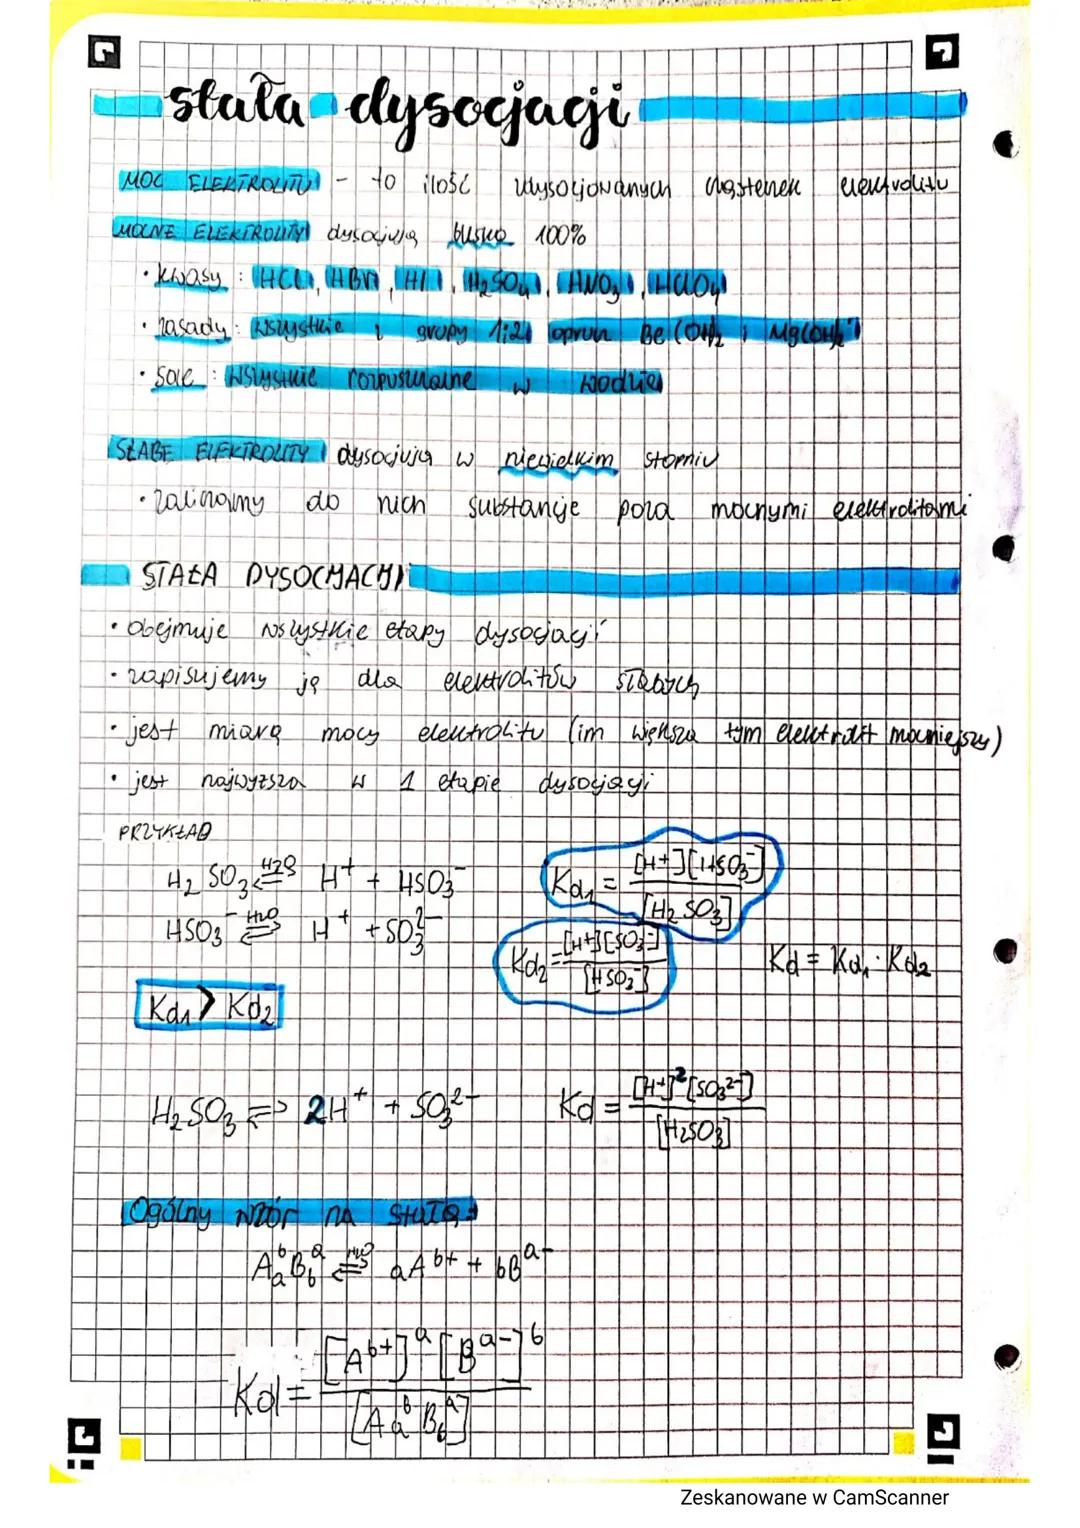 stała dysocjacji
MOC ELEKTROLITU - to ilość zdysocjowanych cząsteczek elektrolitu
MOCNE ELEKTROLITY dysocjują blisko 100%
• kwasy : HCl, HBr, HI, H₂SO₄, HNO₃, HClO₄
• zasady: wszystkie z grupy 1i2 oprócz Be(OH)₂ i Mg(OH)₂
• sole : wszystkie rozpuszczalne w wodzie
SŁABE ELEKTROLITY dysocjują w niewielkim stopniu
• zaliczamy do nich substancje poza mocnymi elektrolitami
STAŁA DYSOCJACJI
• obejmuje wszystkie etapy dysocjacji
• zapisujemy ją dla elektrolitów słabych
• jest miarą mocy elektrolitu (im większa tym elektrolit mocniejszy)
• jest najwyższa w 1 etapie dysocjacji
PRZYKŁAD
H₂SO₃ ⇌ H₂O H⁺ + HSO₃⁻ Kd₁ = [H+][HSO₃⁻] / [H₂SO₃]
HSO₃⁻ ⇌ H₂O H⁺ + SO₃²⁻ Kd₂ = [H+][SO₃²⁻] / [HSO₃⁻] Kd = Kd₁ · Kd₂
Kd₁ > Kd₂
H₂SO₃ ⇌ 2H⁺ + SO₃²⁻ Kd = [H+]²[SO₃²⁻] / [H₂SO₃]
Ogólny wzór na stałą:
Aₐᵇ B_bᵃ ⇌ H₂O aAᵇ⁺ + bBᵃ⁻
Kd = [Aᵇ⁺]ᵃ [Bᵃ⁻]ᵇ / [Aₐᵇ B_bᵃ]
Zeskanowane w CamScanner